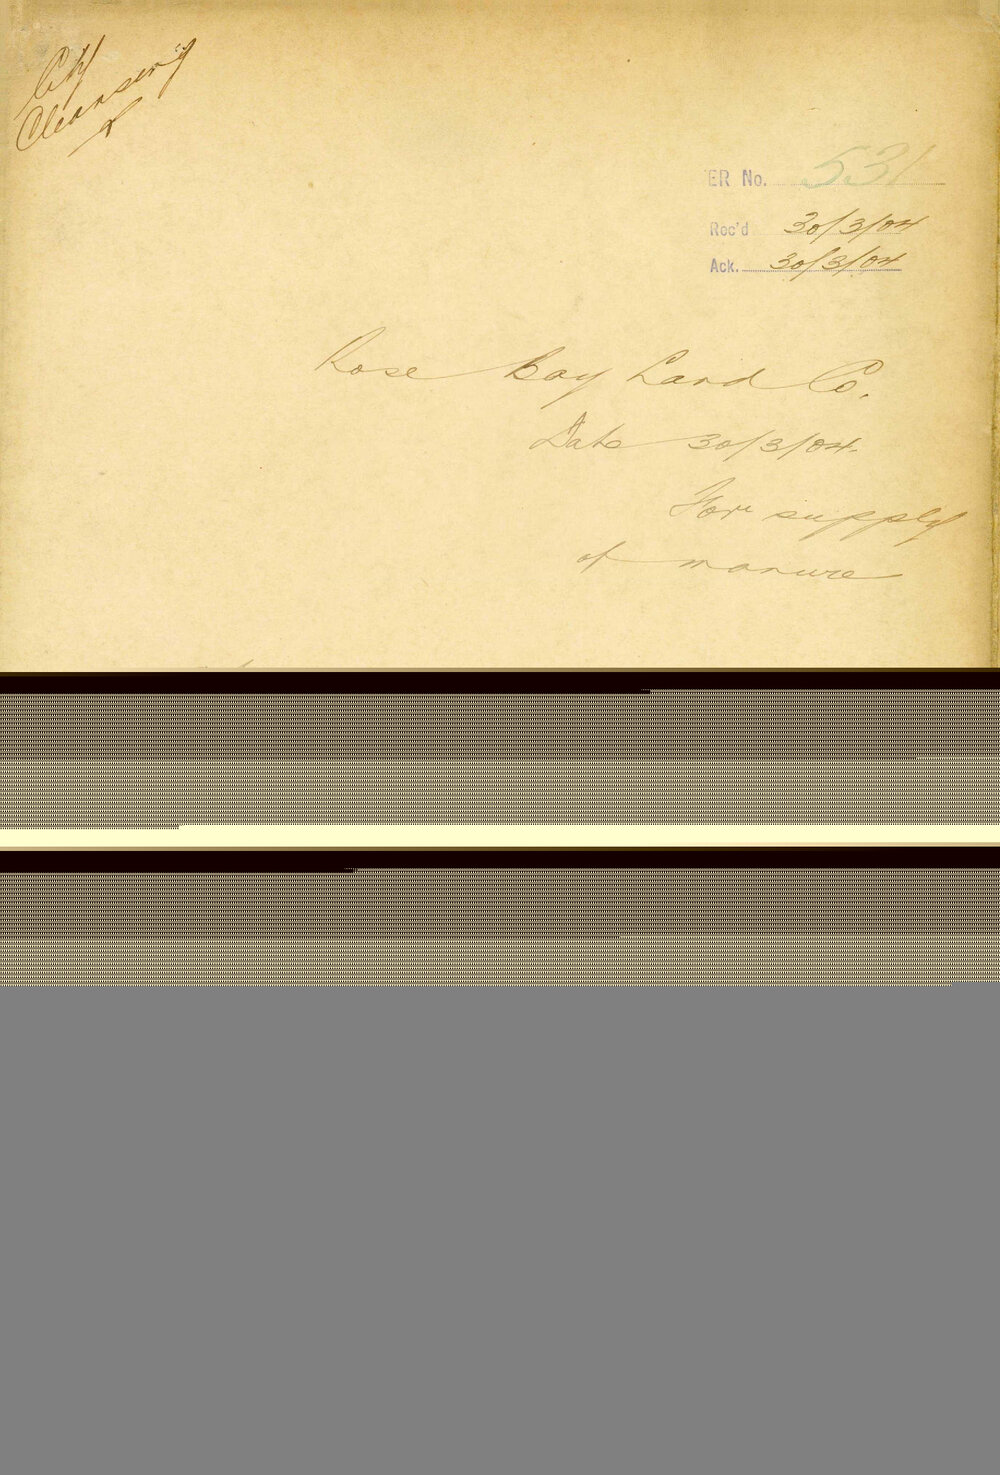 City
Cleansing
ER No. 531
Rec'd 30/3/04
Ack. 30/3/04
Rose Bay Land Co.
Date 30/3/04.
For supply
of manure